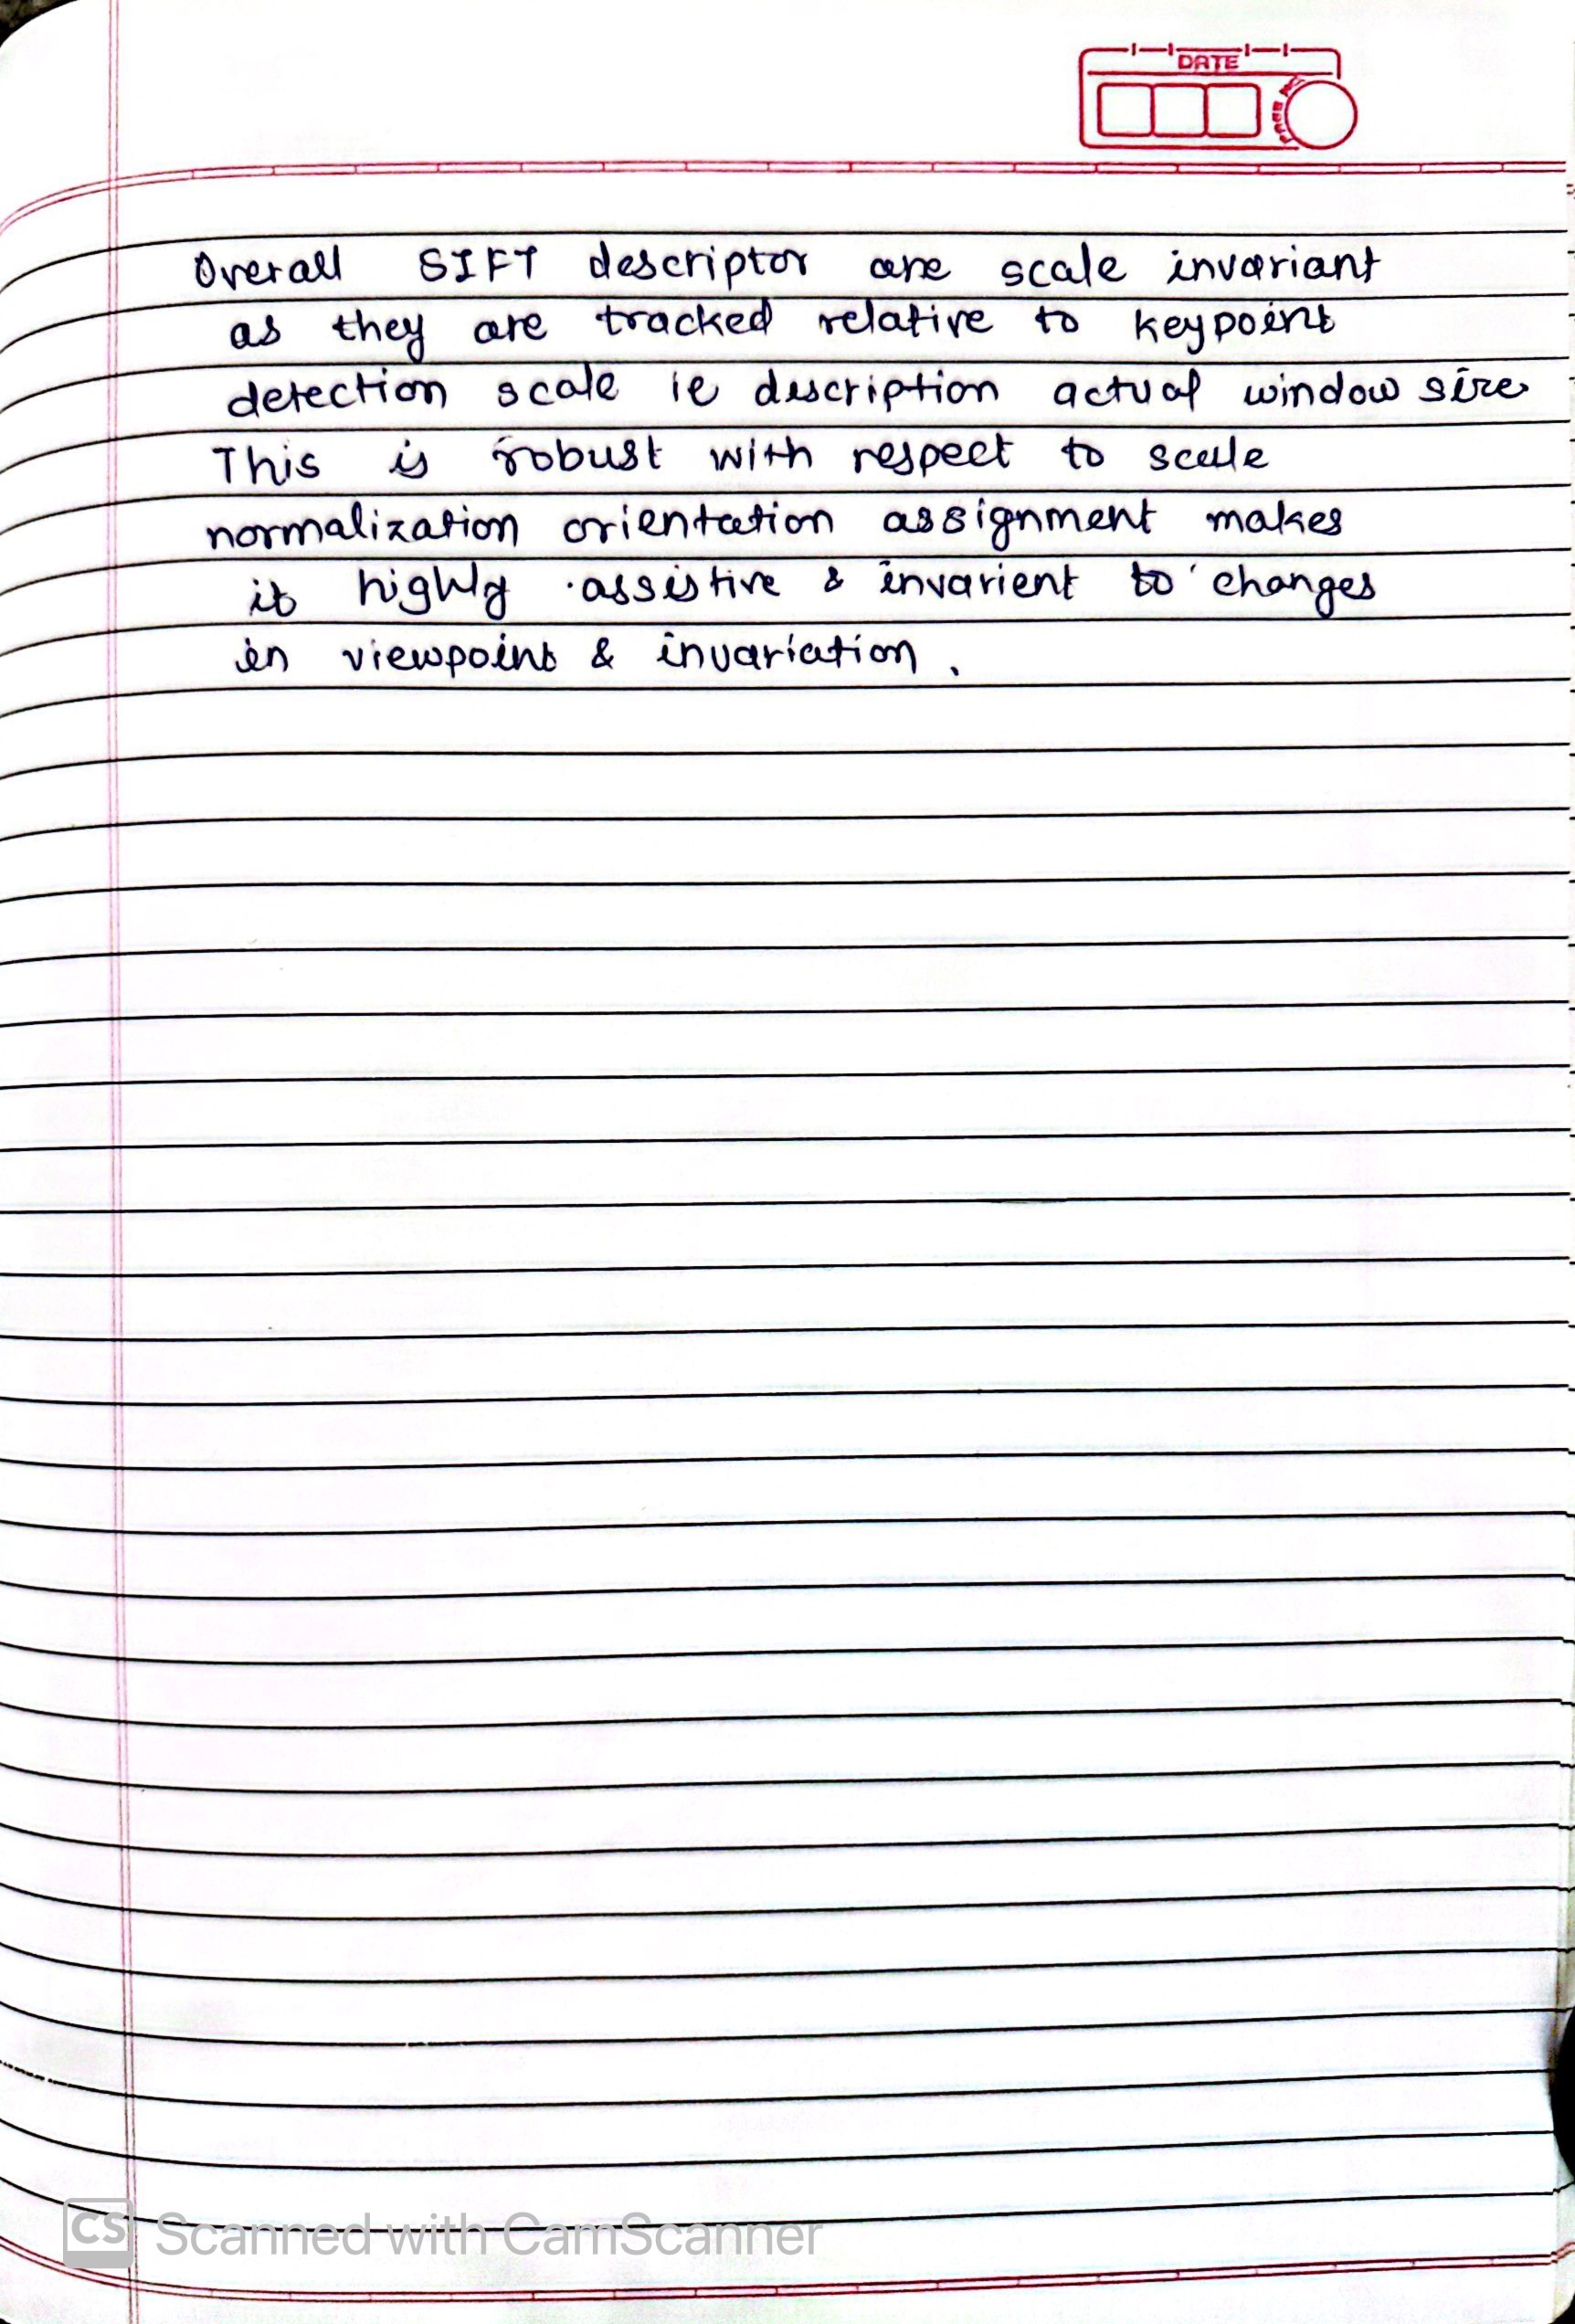 DATE
Overall SIFT descriptor are scale invariant
as they are tracked relative to keypoint
detection scale ie description actual window size
This is robust with respect to scale
normalization orientation assignment makes
it highly assistive & invarient to changes
in viewpoint & invariation.
CS Scanned with CamScanner